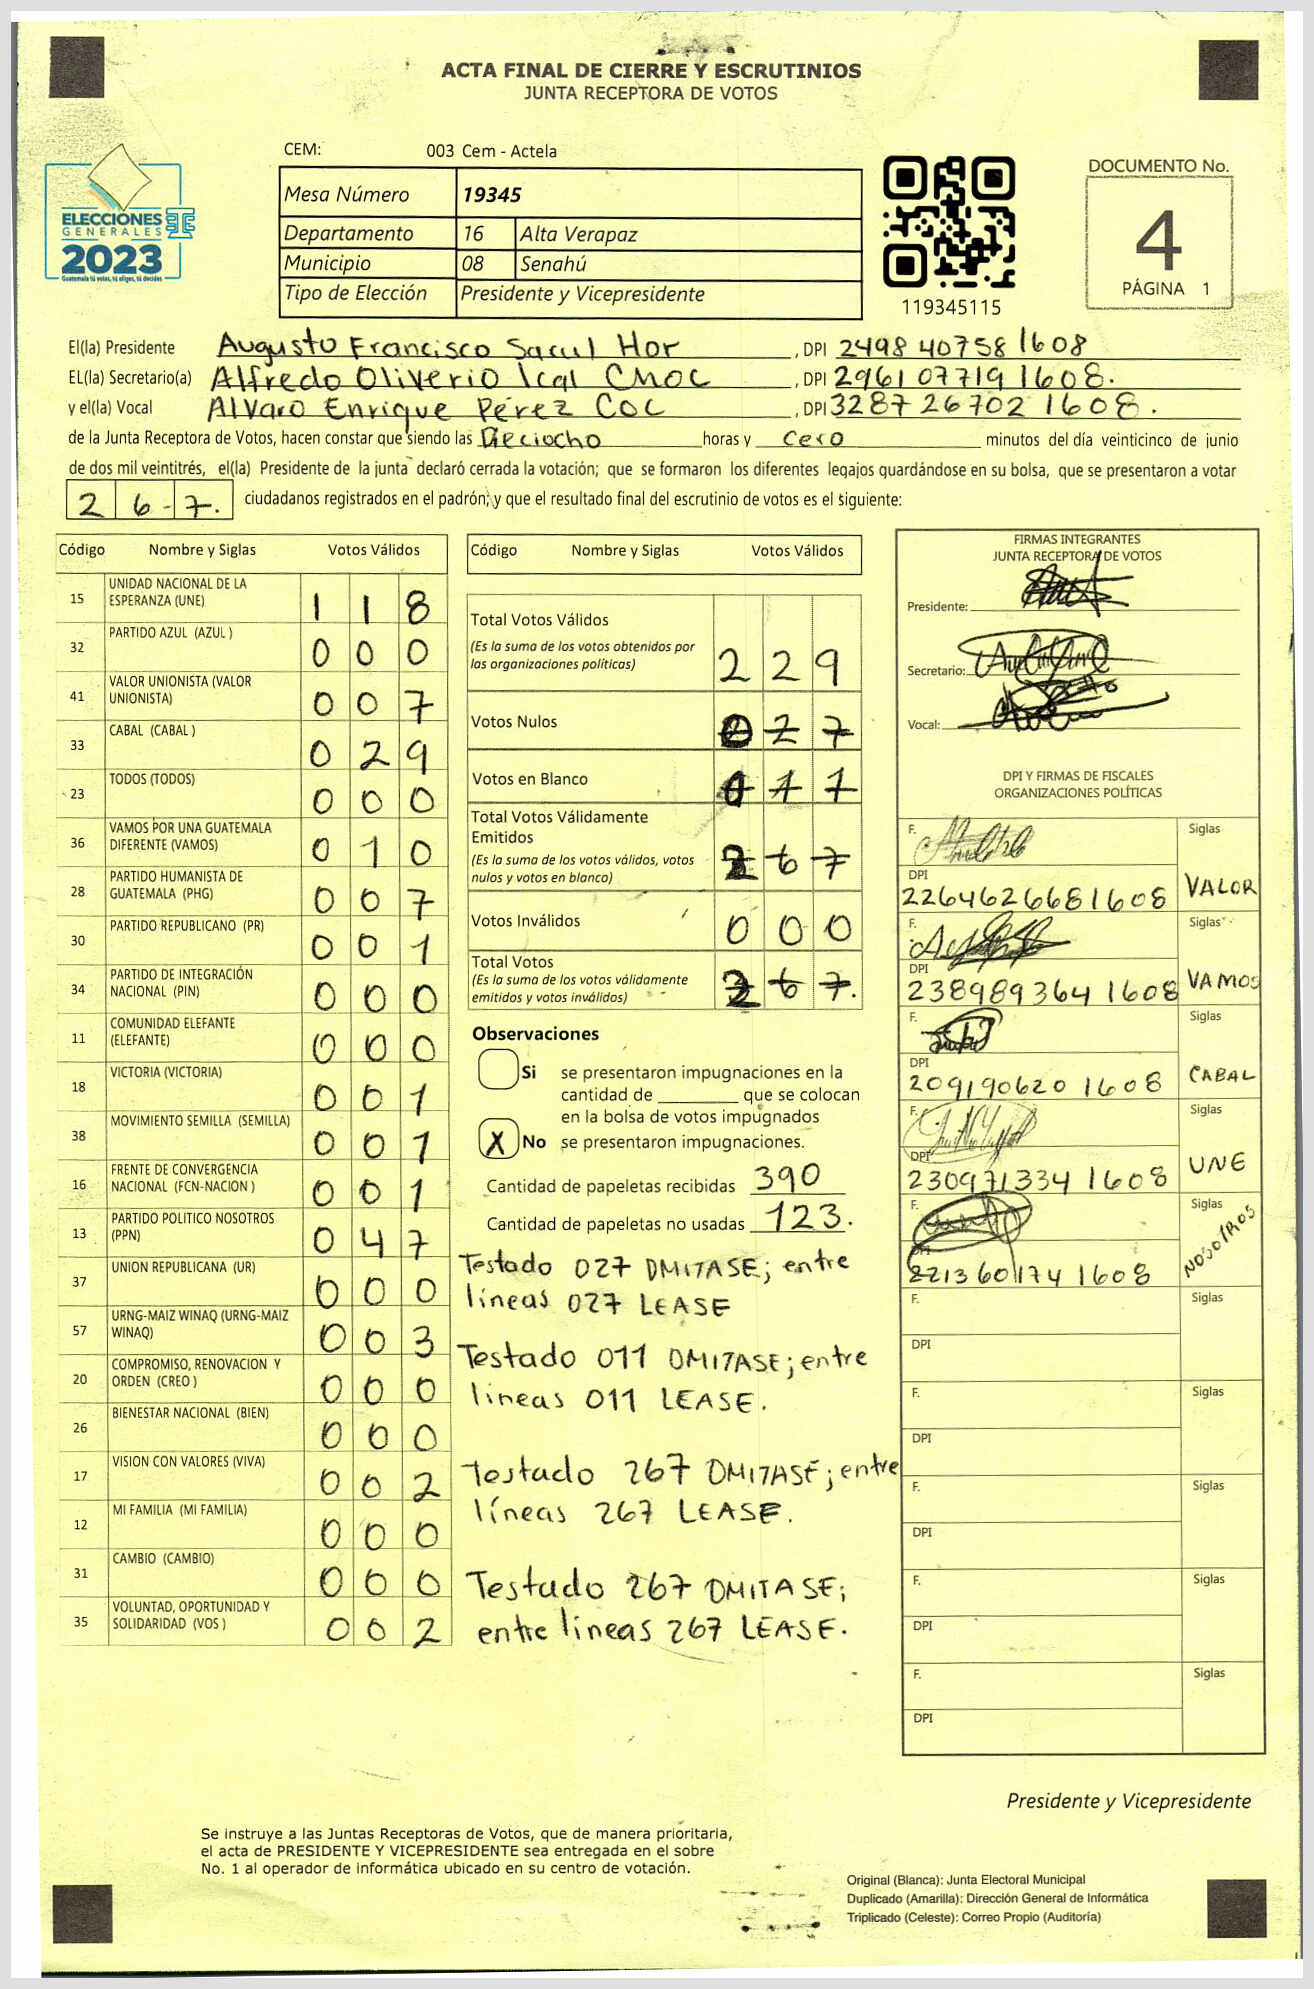 ACTA FINAL DE CIERRE Y ESCRUTINIOS
JUNTA RECEPTORA DE VOTOS
CEM: 003 Cem - Actela
ELECCIONES
GENERALES
2023
Guatemala tú votas, tú eliges, tú decides
Mesa Número 19345
Departamento 16 Alta Verapaz
Municipio 08 Senahú
Tipo de Elección Presidente y Vicepresidente
119345115
DOCUMENTO No.
4
PÁGINA 1
El(la) Presidente Augusto Francisco Sacul Hor , DPI 2498 40758 1608
EL(la) Secretario(a) Alfredo Oliverio Ical CHOC , DPI 2961 07719 1608.
y el(la) Vocal Alvaro Enrique Pérez COC , DPI 3287 26702 1608.
de la Junta Receptora de Votos, hacen constar que siendo las Dieciocho horas y cero minutos del día veinticinco de junio
de dos mil veintitrés, el(la) Presidente de la junta declaró cerrada la votación; que se formaron los diferentes legajos quardándose en su bolsa, que se presentaron a votar
2 6 7. ciudadanos registrados en el padrón; y que el resultado final del escrutinio de votos es el siguiente:
Código Nombre y Siglas Votos Válidos
15 UNIDAD NACIONAL DE LA ESPERANZA (UNE) 1 1 8
32 PARTIDO AZUL (AZUL ) 0 0 0
41 VALOR UNIONISTA (VALOR UNIONISTA) 0 0 7
33 CABAL (CABAL ) 0 2 9
23 TODOS (TODOS) 0 0 0
36 VAMOS POR UNA GUATEMALA DIFERENTE (VAMOS) 0 1 0
28 PARTIDO HUMANISTA DE GUATEMALA (PHG) 0 0 7
30 PARTIDO REPUBLICANO (PR) 0 0 1
34 PARTIDO DE INTEGRACIÓN NACIONAL (PIN) 0 0 0
11 COMUNIDAD ELEFANTE (ELEFANTE) 0 0 0
18 VICTORIA (VICTORIA) 0 0 1
38 MOVIMIENTO SEMILLA (SEMILLA) 0 0 1
16 FRENTE DE CONVERGENCIA NACIONAL (FCN-NACION ) 0 0 1
13 PARTIDO POLITICO NOSOTROS (PPN) 0 4 7
37 UNION REPUBLICANA (UR) 0 0 0
57 URNG-MAIZ WINAQ (URNG-MAIZ WINAQ) 0 0 3
20 COMPROMISO, RENOVACION Y ORDEN (CREO ) 0 0 0
26 BIENESTAR NACIONAL (BIEN) 0 0 0
17 VISION CON VALORES (VIVA) 0 0 2
12 MI FAMILIA (MI FAMILIA) 0 0 0
31 CAMBIO (CAMBIO) 0 0 0
35 VOLUNTAD, OPORTUNIDAD Y SOLIDARIDAD (VOS ) 0 0 2
Código Nombre y Siglas Votos Válidos
Total Votos Válidos 2 2 9
(Es la suma de los votos obtenidos por
las organizaciones políticas)
Votos Nulos 0 2 7
Votos en Blanco 0 1 1
Total Votos Válidamente
Emitidos 2 6 7
(Es la suma de los votos válidos, votos
nulos y votos en blanco)
Votos Inválidos 0 0 0
Total Votos 2 6 7.
(Es la suma de los votos válidamente
emitidos y votos inválidos)
Observaciones
Si se presentaron impugnaciones en la
cantidad de ________ que se colocan
en la bolsa de votos impugnados
X No se presentaron impugnaciones.
Cantidad de papeletas recibidas 390
Cantidad de papeletas no usadas 123.
Testado 027 OMITASE; entre
líneas 027 LEASE
Testado 011 OMITASE; entre
lineas 011 LEASE.
Testado 267 OMITASE; entre
líneas 267 LEASE.
Testado 267 OMITASE;
entre lineas 267 LEASE.
FIRMAS INTEGRANTES
JUNTA RECEPTORA DE VOTOS
Presidente:
Secretario:
Vocal:
DPI Y FIRMAS DE FISCALES
ORGANIZACIONES POLÍTICAS
F. Siglas
DPI 2264626681608 VALOR
F. Siglas
DPI 238989364 1608 VAMOS
F. Siglas
DPI 209190620 1608 CABAL
F. Siglas
DPI 230971334 1608 UNE
F. Siglas
DPI 221360174 1608 NOSOTROS
F. Siglas
DPI
F. Siglas
DPI
F. Siglas
DPI
F. Siglas
DPI
F. Siglas
DPI
Presidente y Vicepresidente
Se instruye a las Juntas Receptoras de Votos, que de manera prioritaria,
el acta de PRESIDENTE Y VICEPRESIDENTE sea entregada en el sobre
No. 1 al operador de informática ubicado en su centro de votación.
Original (Blanca): Junta Electoral Municipal
Duplicado (Amarilla): Dirección General de Informática
Triplicado (Celeste): Correo Propio (Auditoría)